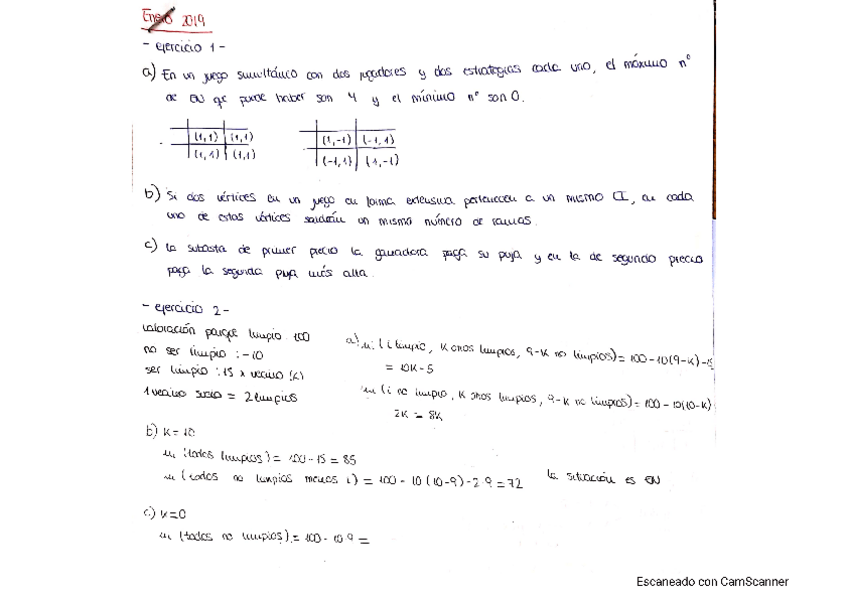 Enero 2019
- ejercicio 1 -
a) En un juego simultáneo con dos jugadores y dos estrategias cada uno, el máximo nº
de EN que puede haber son 4 y el mínimo nº son 0.
(1,1) (1,1) (1,-1) (-1,1)
(1,1) (1,1) (-1,1) (1,-1)
b) Si dos vértices en un juego en forma extensiva pertenecen a un mismo CI, en cada
uno de estos vértices saldrán un mismo número de ramas.
c) La subasta de primer precio la ganadora paga su puja y en la de segundo precio
paga la segunda puja más alta.
- ejercicio 2 -
valoración parque limpio 100
no ser limpio : -10
ser limpio : 15 x vecino (k)
1 vecino sucio = 2 limpios
a) ui (i limpio, k otros limpios, 9-k no limpios) = 100 - 10(9-k) - 15
= 10k - 5
ui (i no limpio, k otros limpios, 9-k no limpios) = 100 - 10(10-k)
2k = 8k
b) k = 10
ui (todos limpios) = 100 - 15 = 85
ui (todos no limpios menos i) = 100 - 10(10-9) - 2·9 = 72 La situación es EN
c) k=0
ui (todos no limpios) = 100 - 10·9 =
Escaneado con CamScanner